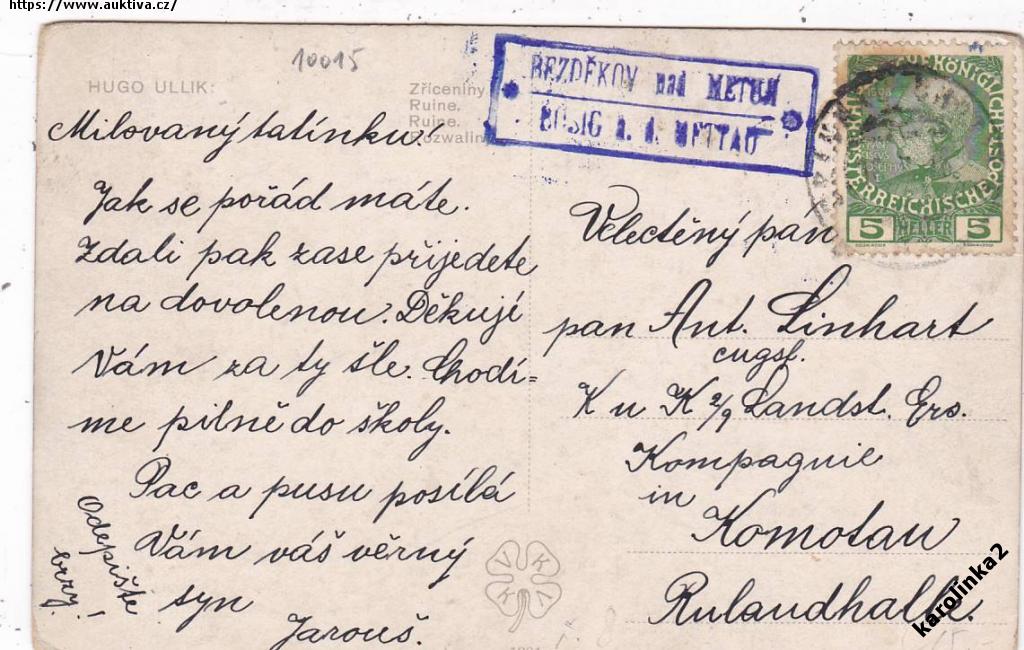 https://www.auktiva.cz/
10015
HUGO ULLIK:
Zříceniny
Ruine.
Ruine.
Rozwaliny
BEZDĚKOV nad METUJÍ
BÖSIG a. d. METTAU
5 HELLER 5
Milovaný tatínku!
Jak se pořád máte.
Zdali pak zase přijedete
na dovolenou. Děkuji
Vám za ty šle. Chodí=
me pilně do školy.
Pac a pusu posílá
Vám váš věrný
syn
Jarouš.
Odepište
brzy!
Velectěný pán
pan Ant. Linhart
cugsf.
K u K 2/9 Landst. Ers.
Kompagnie
in
Komotau
Rulandhalle.
KVKV
karolinka2